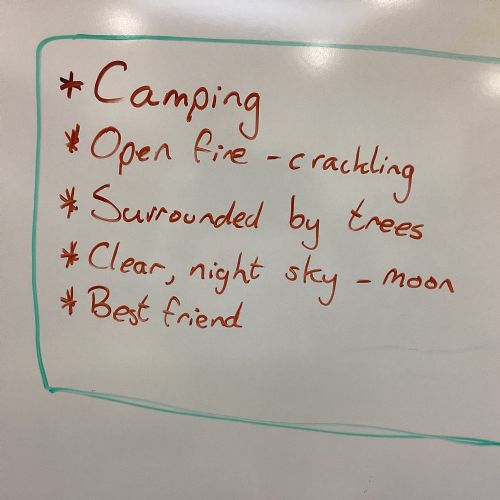 * Camping
* Open fire - crackling
* Surrounded by trees
* Clear, night sky - moon
* Best friend